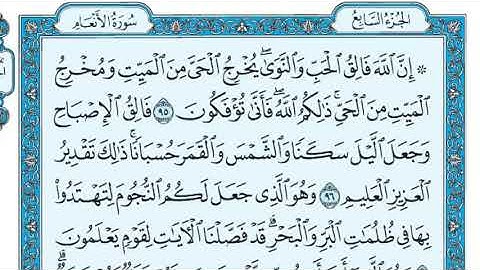 الجزء السابع
سورة الأنعام
۞ إِنَّ ٱللَّهَ فَالِقُ ٱلْحَبِّ وَٱلنَّوَىٰ ۖ يُخْرِجُ ٱلْحَىَّ مِنَ ٱلْمَيِّتِ وَمُخْرِجُ
ٱلْمَيِّتِ مِنَ ٱلْحَىِّ ۚ ذَٰلِكُمُ ٱللَّهُ ۖ فَأَنَّىٰ تُؤْفَكُونَ ٩٥ فَالِقُ ٱلْإِصْبَاحِ
وَجَعَلَ ٱلَّيْلَ سَكَنًا وَٱلشَّمْسَ وَٱلْقَمَرَ حُسْبَانًا ۚ ذَٰلِكَ تَقْدِيرُ
ٱلْعَزِيزِ ٱلْعَلِيمِ ٩٦ وَهُوَ ٱلَّذِى جَعَلَ لَكُمُ ٱلنُّجُومَ لِتَهْتَدُوا۟
بِهَا فِى ظُلُمَٰتِ ٱلْبَرِّ وَٱلْبَحْرِ ۗ قَدْ فَصَّلْنَا ٱلْـَٔايَٰتِ لِقَوْمٍ يَعْلَمُونَ